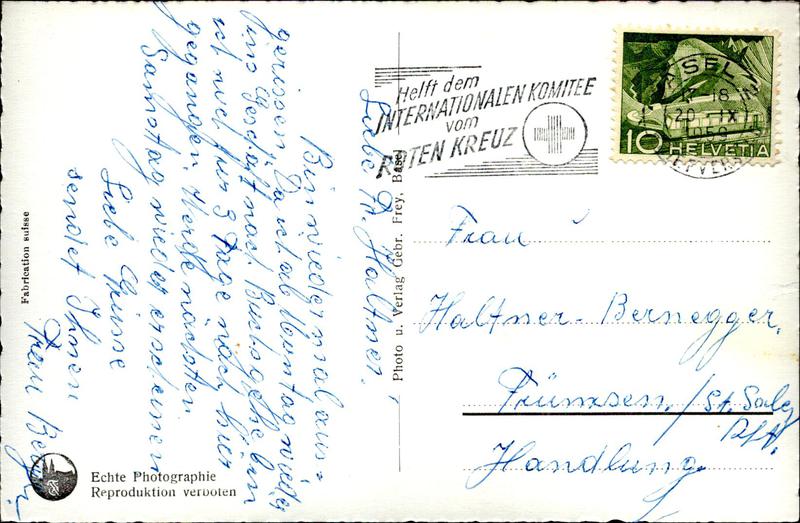 Liebe Fr. Haltner,
Bin wieder mal aus=
gerissen. Da ich ab Montag wieder
ins Geschäft nach Buchs gehe bin
ich nur für 3 Tage nach hier
gegangen. Werde nächsten
Samstag wieder erscheinen
Liebe Grüsse
sendet Ihnen
Frau
Helft dem
INTERNATIONALEN KOMITEE
vom
ROTEN KREUZ
BASEL
18
20. IX
1950
10 HELVETIA
Frau
Haltner-Bernegger,
Trümsen,/St. Galg
Handlung.
Photo u. Verlag Gebr. Frey, Basel
Fabrication suisse
Echte Photographie
Reproduktion verboten